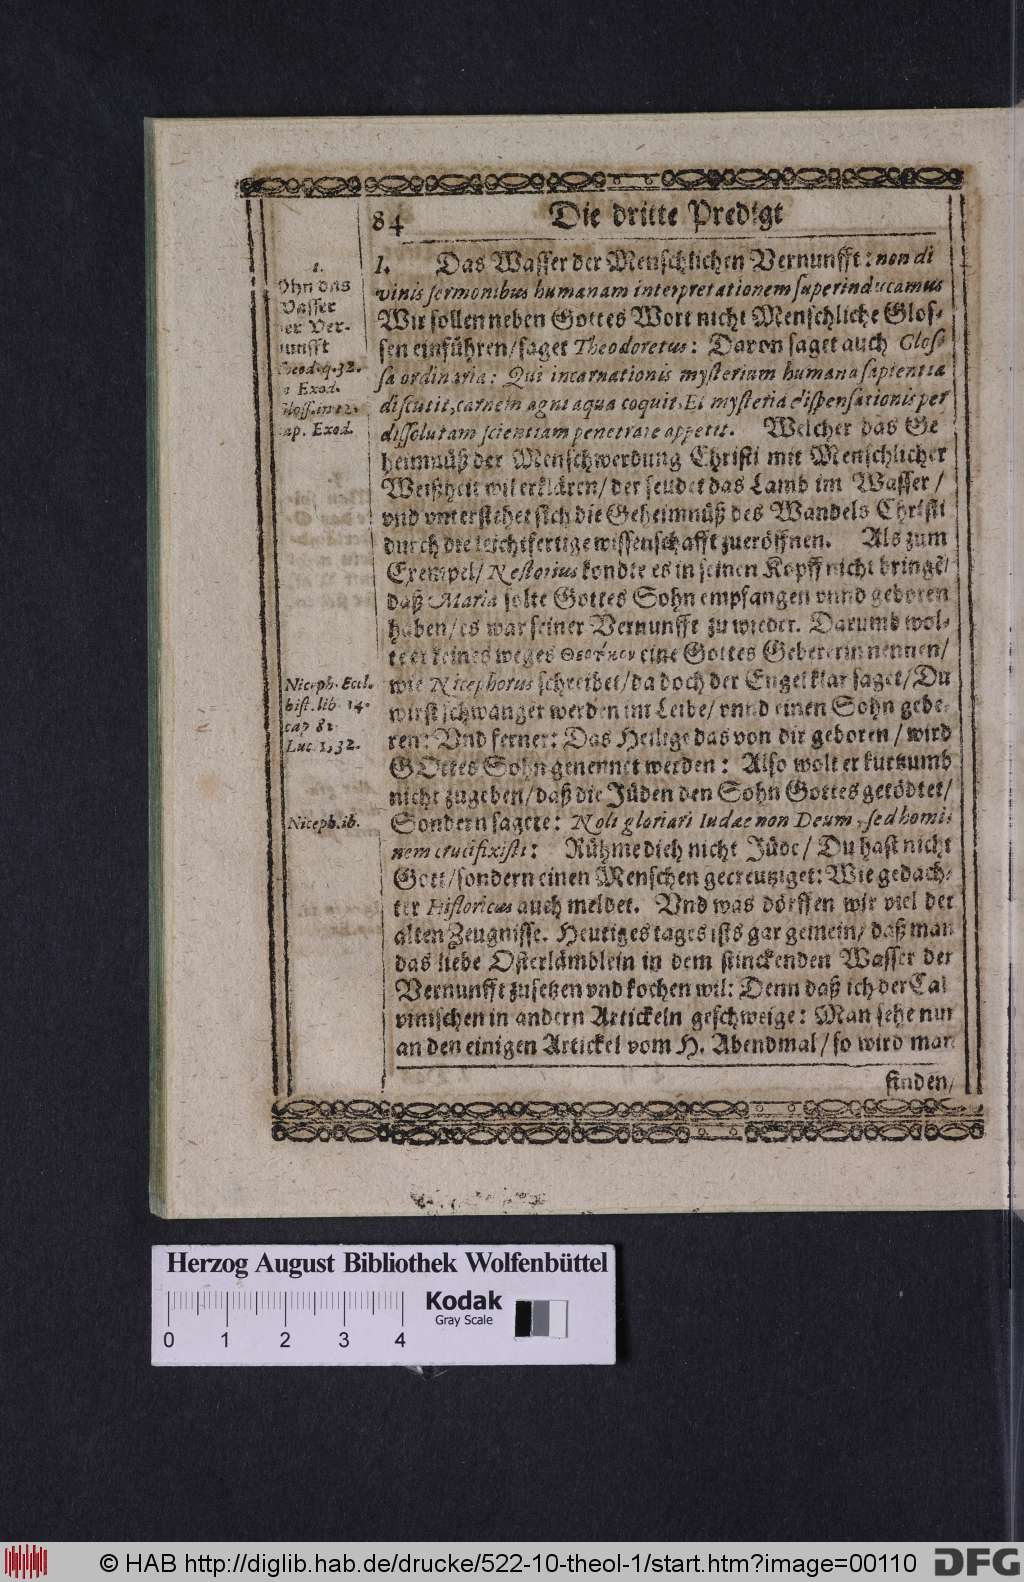 84
Die dritte Predigt
1.
Ohn das
Wasser
der Ver-
nunfft
Theod. q. 32.
Exod.
Gloss. in 12.
cap. Exod.
I. Das Wasser der Menschlichen Vernunfft: non di
vinis sermonibus humanam interpretationem superinducamus
Wir sollen neben Gottes Wort nicht Menschliche Glos-
sen einführen/ saget Theodoretus: Daron saget auch Glos-
sa ordinaria: Qui incarnationis mysterium humana sapientia
discutit, carnem agni aqua coquit, Et mysteria dispensationis per
dissolutam scientiam penetrare appetit. Welcher das Ge
heimnüß der Menschwerdung Christi mit Menschlicher
Weißheit wil erklären/ der seudet das Lamb im Wasser/
vnd vnterstehet sich die Geheimnüß des Wandels Christi
durch die leichtfertige wissenschafft zueröffnen. Als zum
Exempel/ Nestorius kondte es in seinen Kopff nicht bringẽ/
daß Maria solte Gottes Sohn empfangen vnnd geboren
haben/ es war seiner Vernunfft zu wieder. Darumb wol-
te er keines weges Θεοτόκον eine Gottes Gebererin nennen/
wie Nicephorus schreibet/ da doch der Engel klar saget/ Du
wirst schwanger werden im Leibe/ vnnd einen Sohn gebe-
ren: Vnd ferner: Das Heilige das von dir geboren/ wird
GOttes Sohn genennet werden: Also wolt er kurtzumb
nicht zugeben/ daß die Jüden den Sohn Gottes getödtet/
Sondern sagete: Noli gloriari Iudæe non Deum, sed homi-
nem crucifixisti: Rühme dich nicht Jüde/ Du hast nicht
Gott/ sondern einen Menschen gecreutziget: Wie gedach-
ter Historicus auch meldet. Vnd was dörffen wir viel der
alten Zeugnisse. Heutiges tages ists gar gemein/ daß man
das liebe Osterlämblein in dem stinckenden Wasser der
Vernunfft zusetzen vnd kochen wil: Denn daß ich der Cal
vinischen in andern Artickeln geschweige: Man sehe nur
an den einigen Artickel vom H. Abendmal/ so wird man
finden/
Niceph. Eccl.
hist. lib. 14.
cap 82
Luc. 1, 32.
Niceph. ib.
Herzog August Bibliothek Wolfenbüttel
0 1 2 3 4
Kodak
Gray Scale
© HAB http://diglib.hab.de/drucke/522-10-theol-1/start.htm?image=00110
DFG